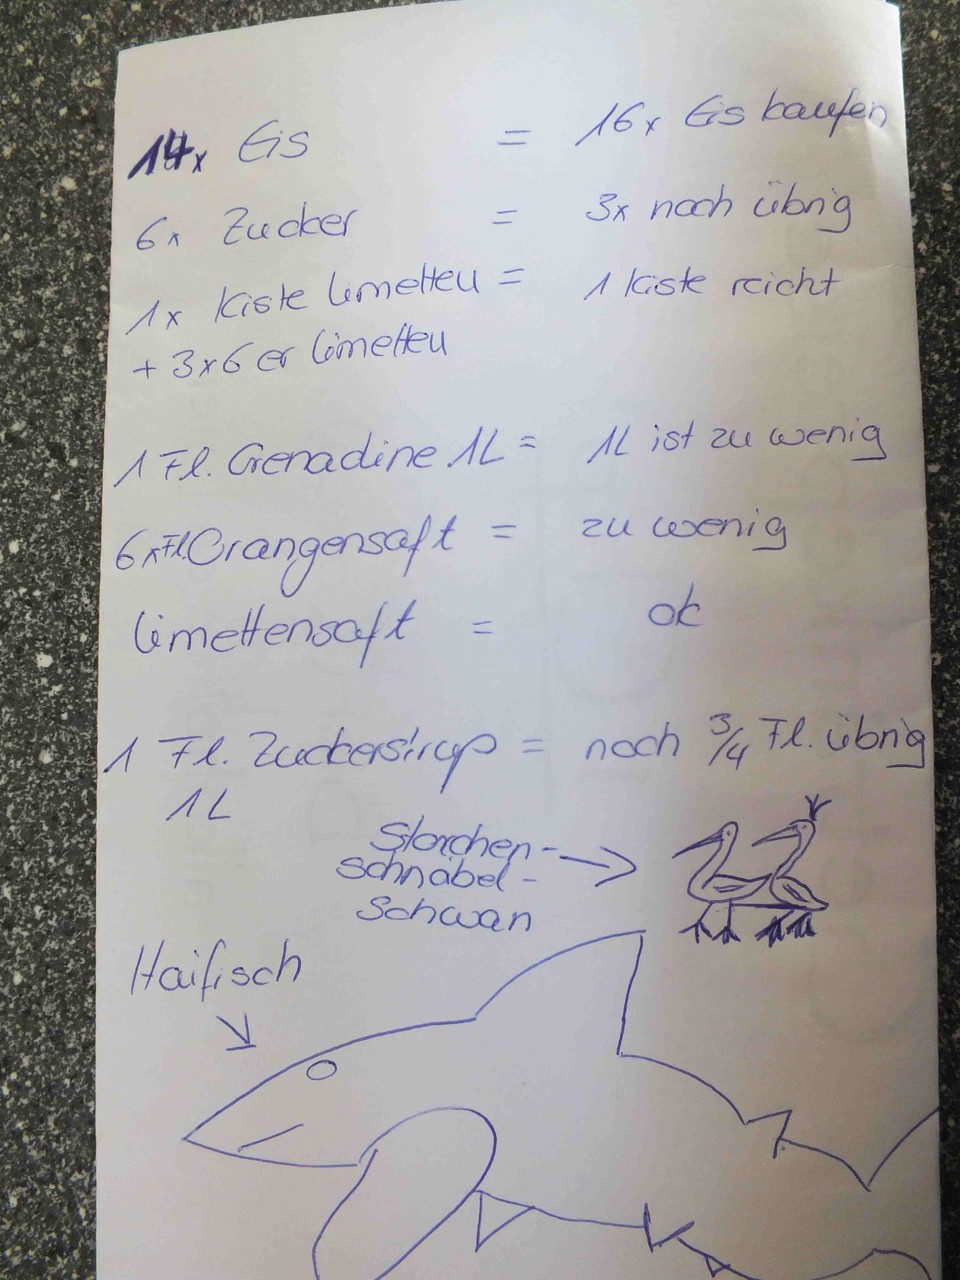 14x Eis = 16x Eis kaufen
6x Zucker = 3x noch übrig
1x Kiste Limetten = 1 Kiste reicht
+ 3x6er Limetten
1 Fl. Grenadine 1L = 1L ist zu wenig
6xFl.Orangensaft = zu wenig
Limettensaft = ok
1 Fl. Zuckersirup = noch 3/4 Fl. übrig
1L
Storchen-
schnabel-
Schwan
Haifisch